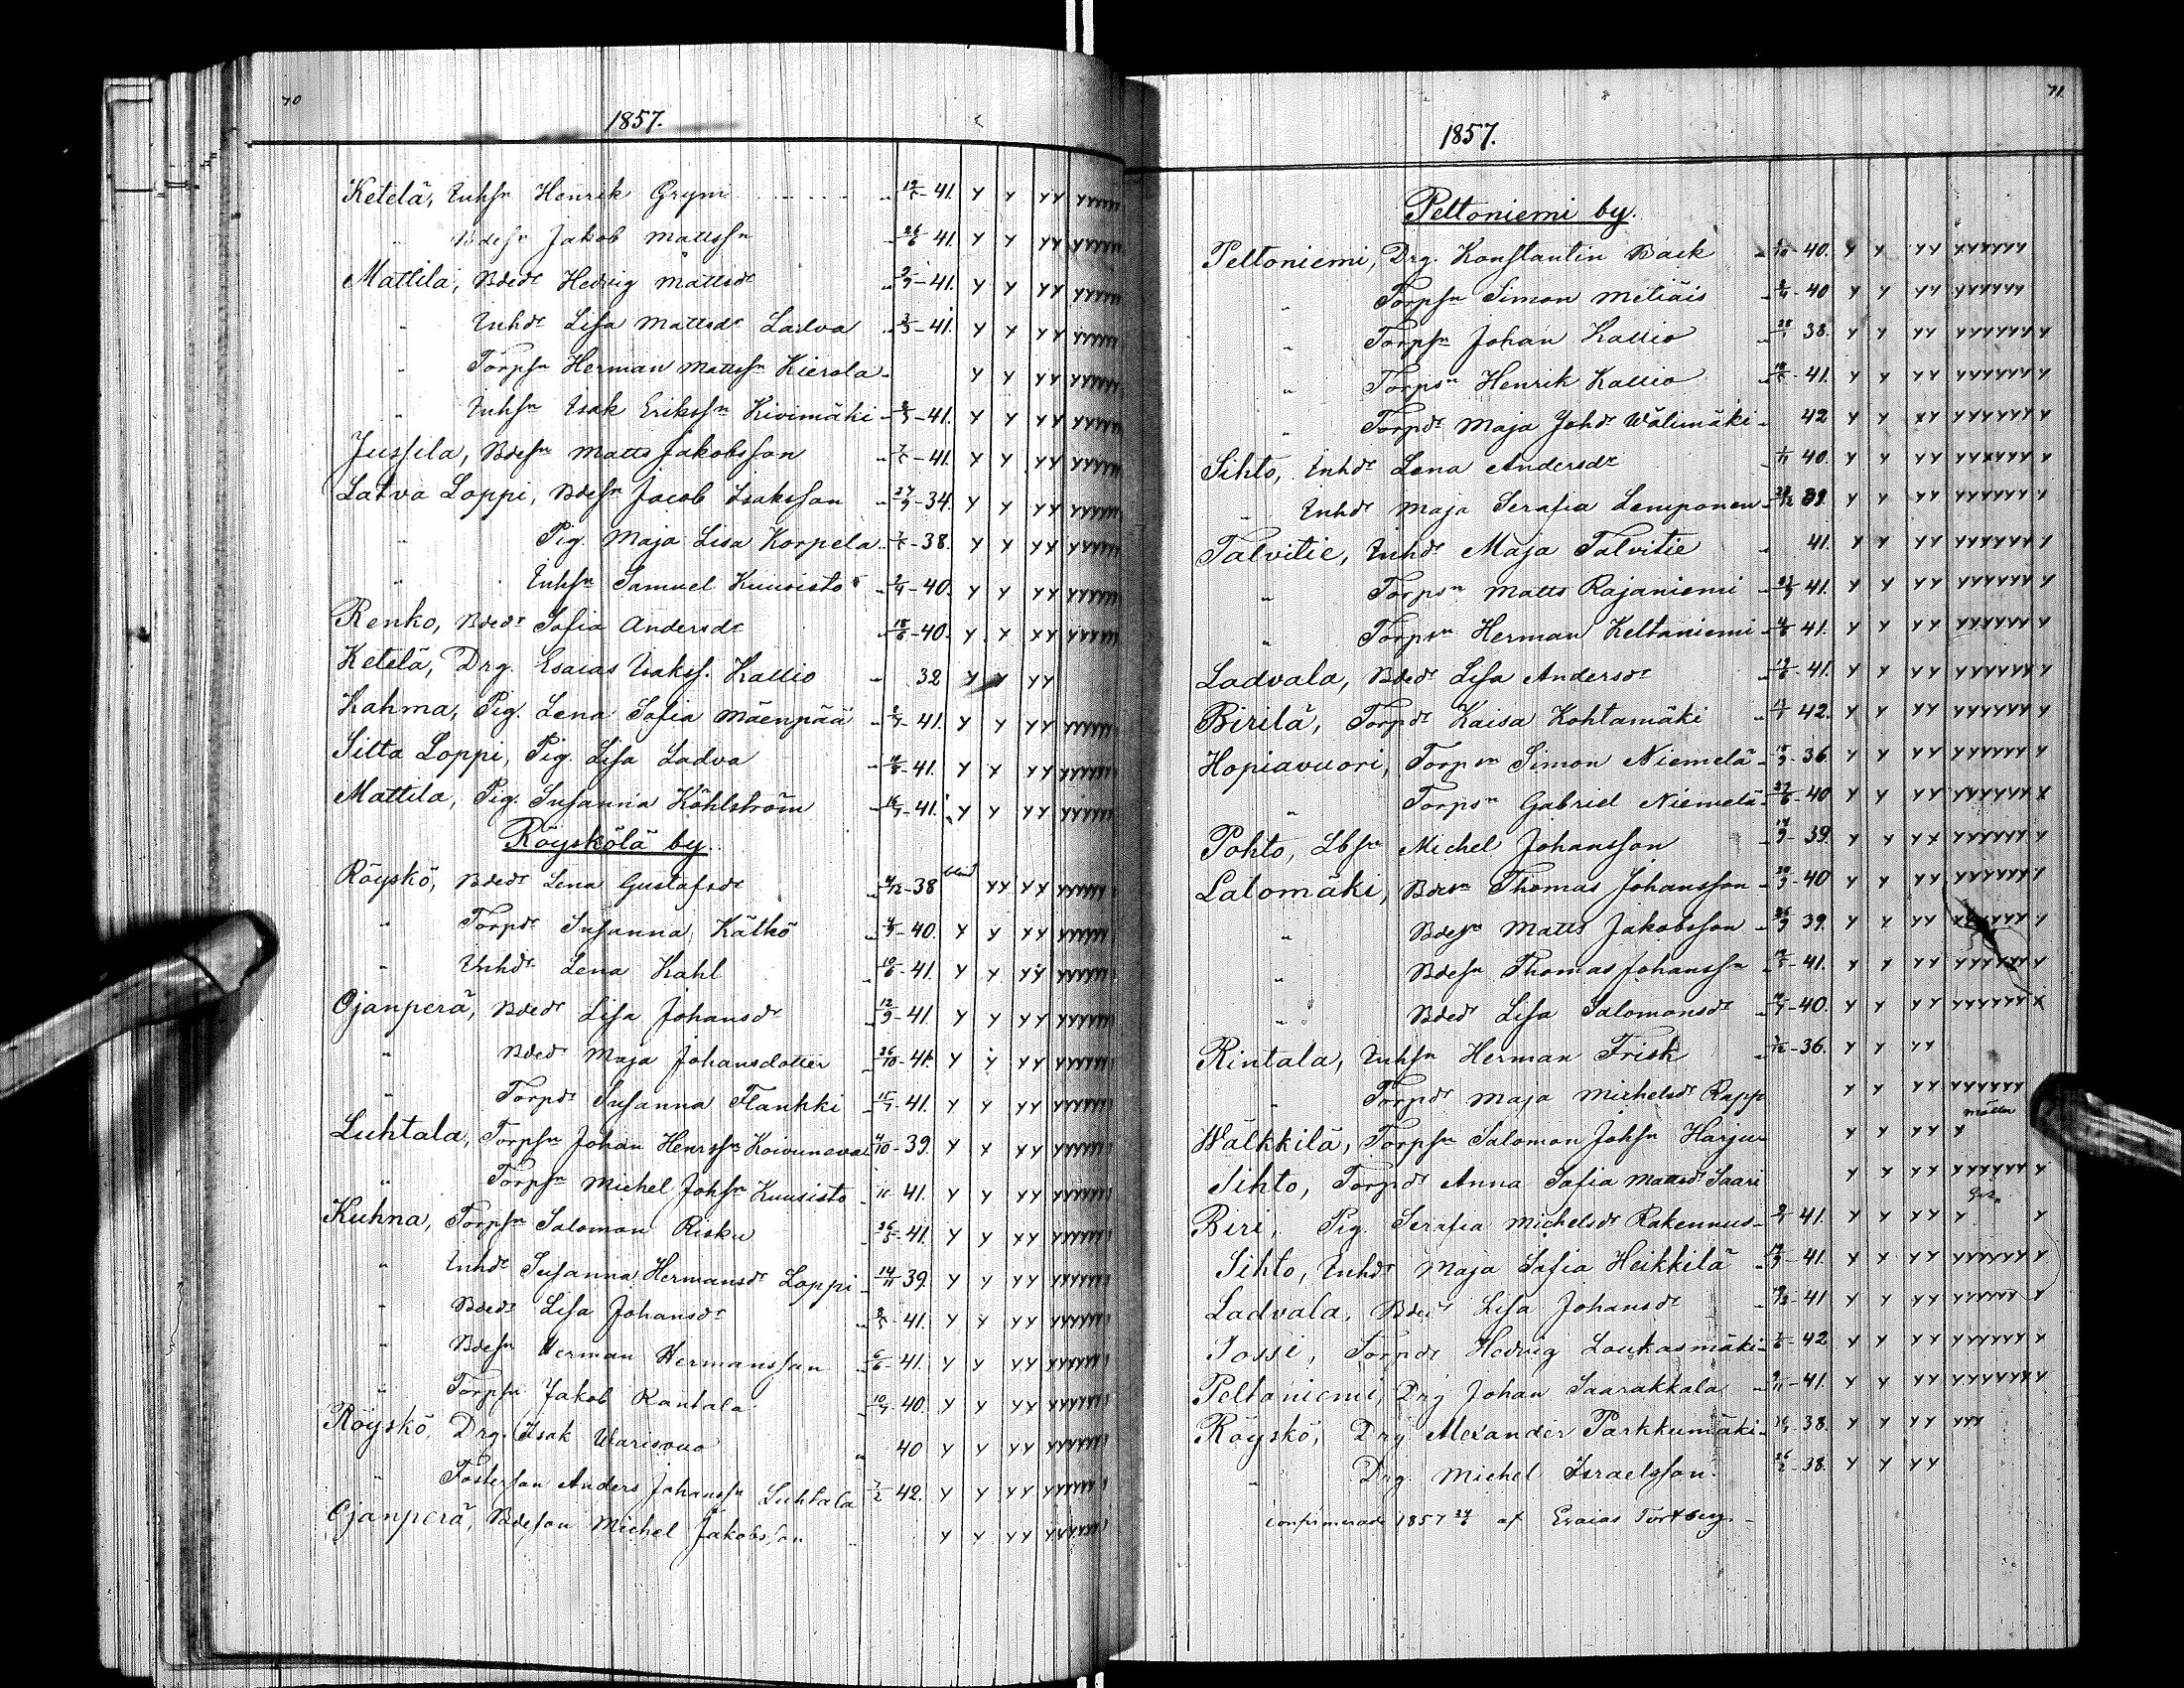 70
1857.
Ketelä, Inhsn Henrik Grym 19/5-41. Y Y YY YYYYYY
" Bdesn Jakob Mattssn " 26/6 41. Y Y YY YYYYYY
Mattila, Bdedr Hedvig Mattsdr " 2/9-41. Y Y YY YYYYYY
" Inhdr Lisa Mattsdr Ladva " 3/3-41. Y Y YY YYYYYY
" Torpsn Herman Mattssn Kierola Y Y YY YYYYYY
" Inhsn Isak Erikssn Kivimäki 41. Y Y YY YYYYYY
Jussila, Bdesn Matts Jakobsson " 41. Y Y YY YYYYYY
Latva Loppi, Bdesn Jacob Isaksson " 27/9-34. Y Y YY YYYYYY
" Pig. Maja Lisa Korpela 38. Y Y YY YYYYYY
" Inhsn Samuel Kuusisto " 40. Y Y YY YYYYYY
Renko, Bdedr Sofia Andersdr " 18/6-40. Y Y YY YYYYYY
Ketelä, Drg. Esaias Isakss. Kallio " 32 Y Y YY
Kahma, Pig. Lena Sofia Mäenpää " 41. Y Y YY YYYYYY
Sitta Loppi, Pig. Lisa Ladva " 41. Y Y YY YYYYYY
Mattila, Pig. Susanna Köhlström 41. Y Y YY YYYYYY
Röyskölä by.
Röyskö, Bdedr Lena Gustafsdr " 4/12-38 blind YY YY YYYYYY
" Torpdr Susanna Kätkö " 40. Y Y YY YYYYYY
" Inhdr Lena Kahl " 10/6-41. Y Y YY YYYYYY
Ojanperä, Bdedr Lisa Johansdr " 12/9-41. Y Y YY YYYYYY
" Bdedr Maja Johansdotter 26/10-41. Y Y YY YYYYYY
" Torpdr Susanna Flankki 41. Y Y YY YYYYYY
Luhtala, Torpsn Johan Henrssn Koivuneva 4/10-39. Y Y YY YYYYYY
" Torpsn Michel Johsn Kuusisto 41. Y Y YY YYYYYY
Kuhna, Torpsn Salomon Risku 26/5-41. Y Y YY YYYYYY
" Inhdr Susanna Hermansdr Loppi 14/11 39. Y Y YY YYYYYY
" Bdedr Lisa Johansdr " 41. Y Y YY YYYYYY
" Bdesn Herman Hermansson " 6/6-41. Y Y YY YYYYYY
" Torpsn Jakob Rantala " 40. Y Y YY YYYYYY
Röyskö, Drg. Isak Warisvuo " 40 Y Y YY YYYYYY
" Fosterson Anders Johanssn Luhtala 7/2 42. Y Y YY YYYYYY
Ojanperä, Bdeson Michel Jakobsson Y Y YY YYYYYY
71.
1857.
Peltoniemi by.
Peltoniemi, Drg. Konstantin Back 40. Y Y YY YYYYYY
" Torpsn Simon Metiäis 40 Y Y YY YYYYYY
" Torpsn Johan Kallio 38. Y Y YY YYYYYY Y
" Torpsn Henrik Kallio 41. Y Y YY YYYYYY Y
" Torpdr Maja Johdr Wälimäki 42 Y Y YY YYYYYY Y
Sihto, Inhdr Lena Andersdr 40. Y Y YY YYYYYY Y
" Inhdr Maja Serafia Lemponen 39. Y Y YY YYYYYY Y
Talvitie, Inhdr Maja Talvitie " 41. Y Y YY YYYYYY Y
" Torpsn Matts Rajaniemi 41. Y Y YY YYYYYY Y
" Torpsn Herman Keltaniemi 41. Y Y YY YYYYYY Y
Ladvala, Bdedr Lisa Andersdr 19/6-41. Y Y YY YYYYYY Y
Birilä, Torpdr Kaisa Kohtamäki " 42. Y Y YY YYYYYY Y
Hopiavuori, Torpsn Simon Niemelä 36. Y Y YY YYYYYY Y
" Torpsn Gabriel Niemelä 27/6-40 Y Y YY YYYYYY Y
Pohto, Lbsn Michel Johansson 14/9-39. Y Y YY YYYYYY Y
Latomäki, Bdesn Thomas Johansson 40 Y Y YY YYYYYY Y
" Bdesn Matts Jakobsson 39. Y Y YY YYYYYY Y
" Bdesn Thomas Johanssn 41. Y Y YY YYYYYY Y
" Bdedr Lisa Salomonsdr 40. Y Y YY YYYYYY Y
Rintala, Inhsn Herman Frisk 36. Y Y YY
" Torpdr Maja Michelsdr Rapp Y Y YY YYYYYY
Wälkkilä, Torpsn Salomon Johsn Harju Y Y YY Y
Sihto, Torpdr Anna Sofia Mattsdr Saari Y Y YY YYYYYY Y
Biri, Pig. Serafia Michelsdr Rakennus 41. Y Y YY Y Y
Sihto, Inhdr Maja Sofia Heikkilä 41. Y Y YY YYYYYY Y
Ladvala, Bdedr Lisa Johansdr 41 Y Y YY YYYYYY Y
Jossi, Torpdr Hedvig Loukasmäki 42 Y Y YY YYYYYY Y
Peltoniemi, Drg Johan Saarakkala 9/11-41. Y Y YY YYYYYY Y
Röyskö, Drg Alexander Parkkumäki 38. Y Y YY YYY
" Drg. Michel Israelsson. 26/2-38. Y Y YY
confirmerade 1857 af Esaias Fortberg.